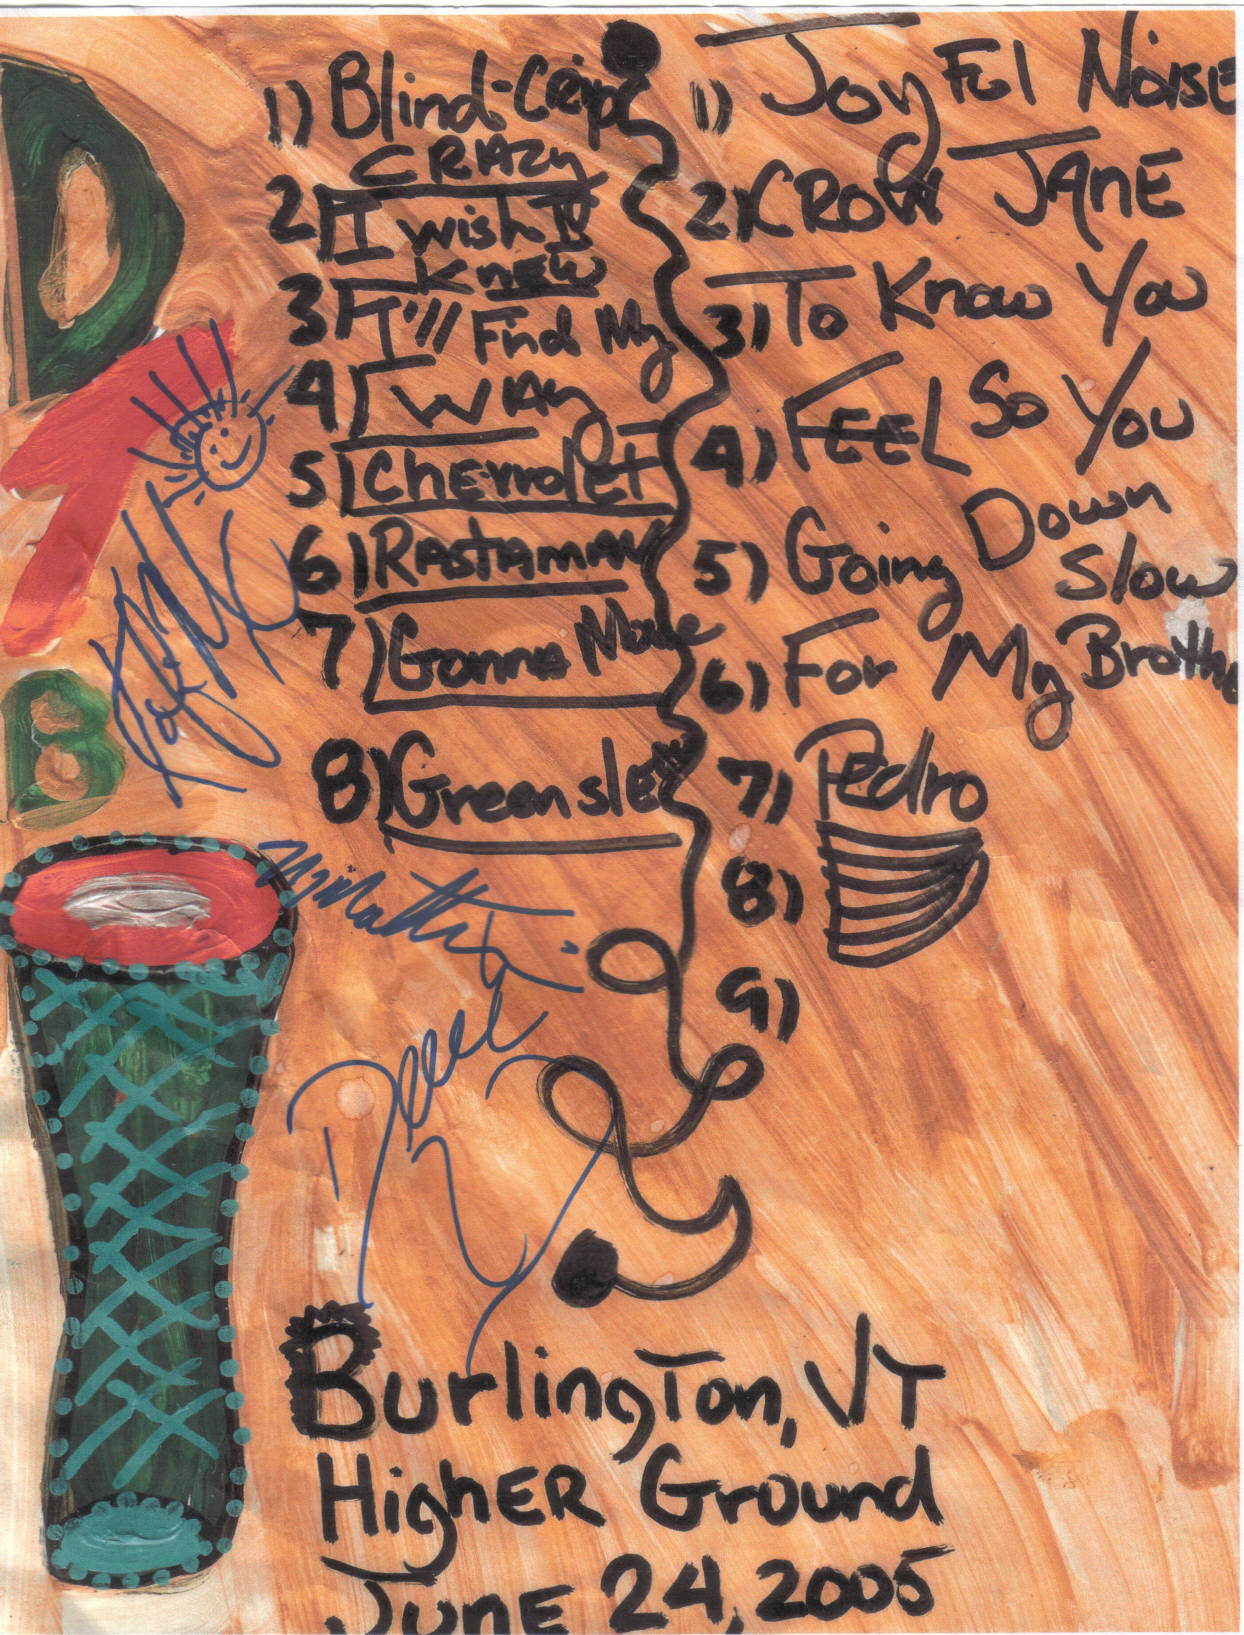 D
T
B
1) Blind-Crip
CRAZy
2) I wish I
KnEW
3) I'll Find My
4) WAy
5) ChEvrolET
6) RASTAMAN
7) Gonna Move
8) Greenslee
1) Joy FUl NoisE
2) CROW JAnE
3) To Know You
4) FEEL So You
5) Going Down
Slow
6) For My Brothe
7) Pedro
8)
9)
Burlington, VT
HighER Ground
JunE 24, 2005